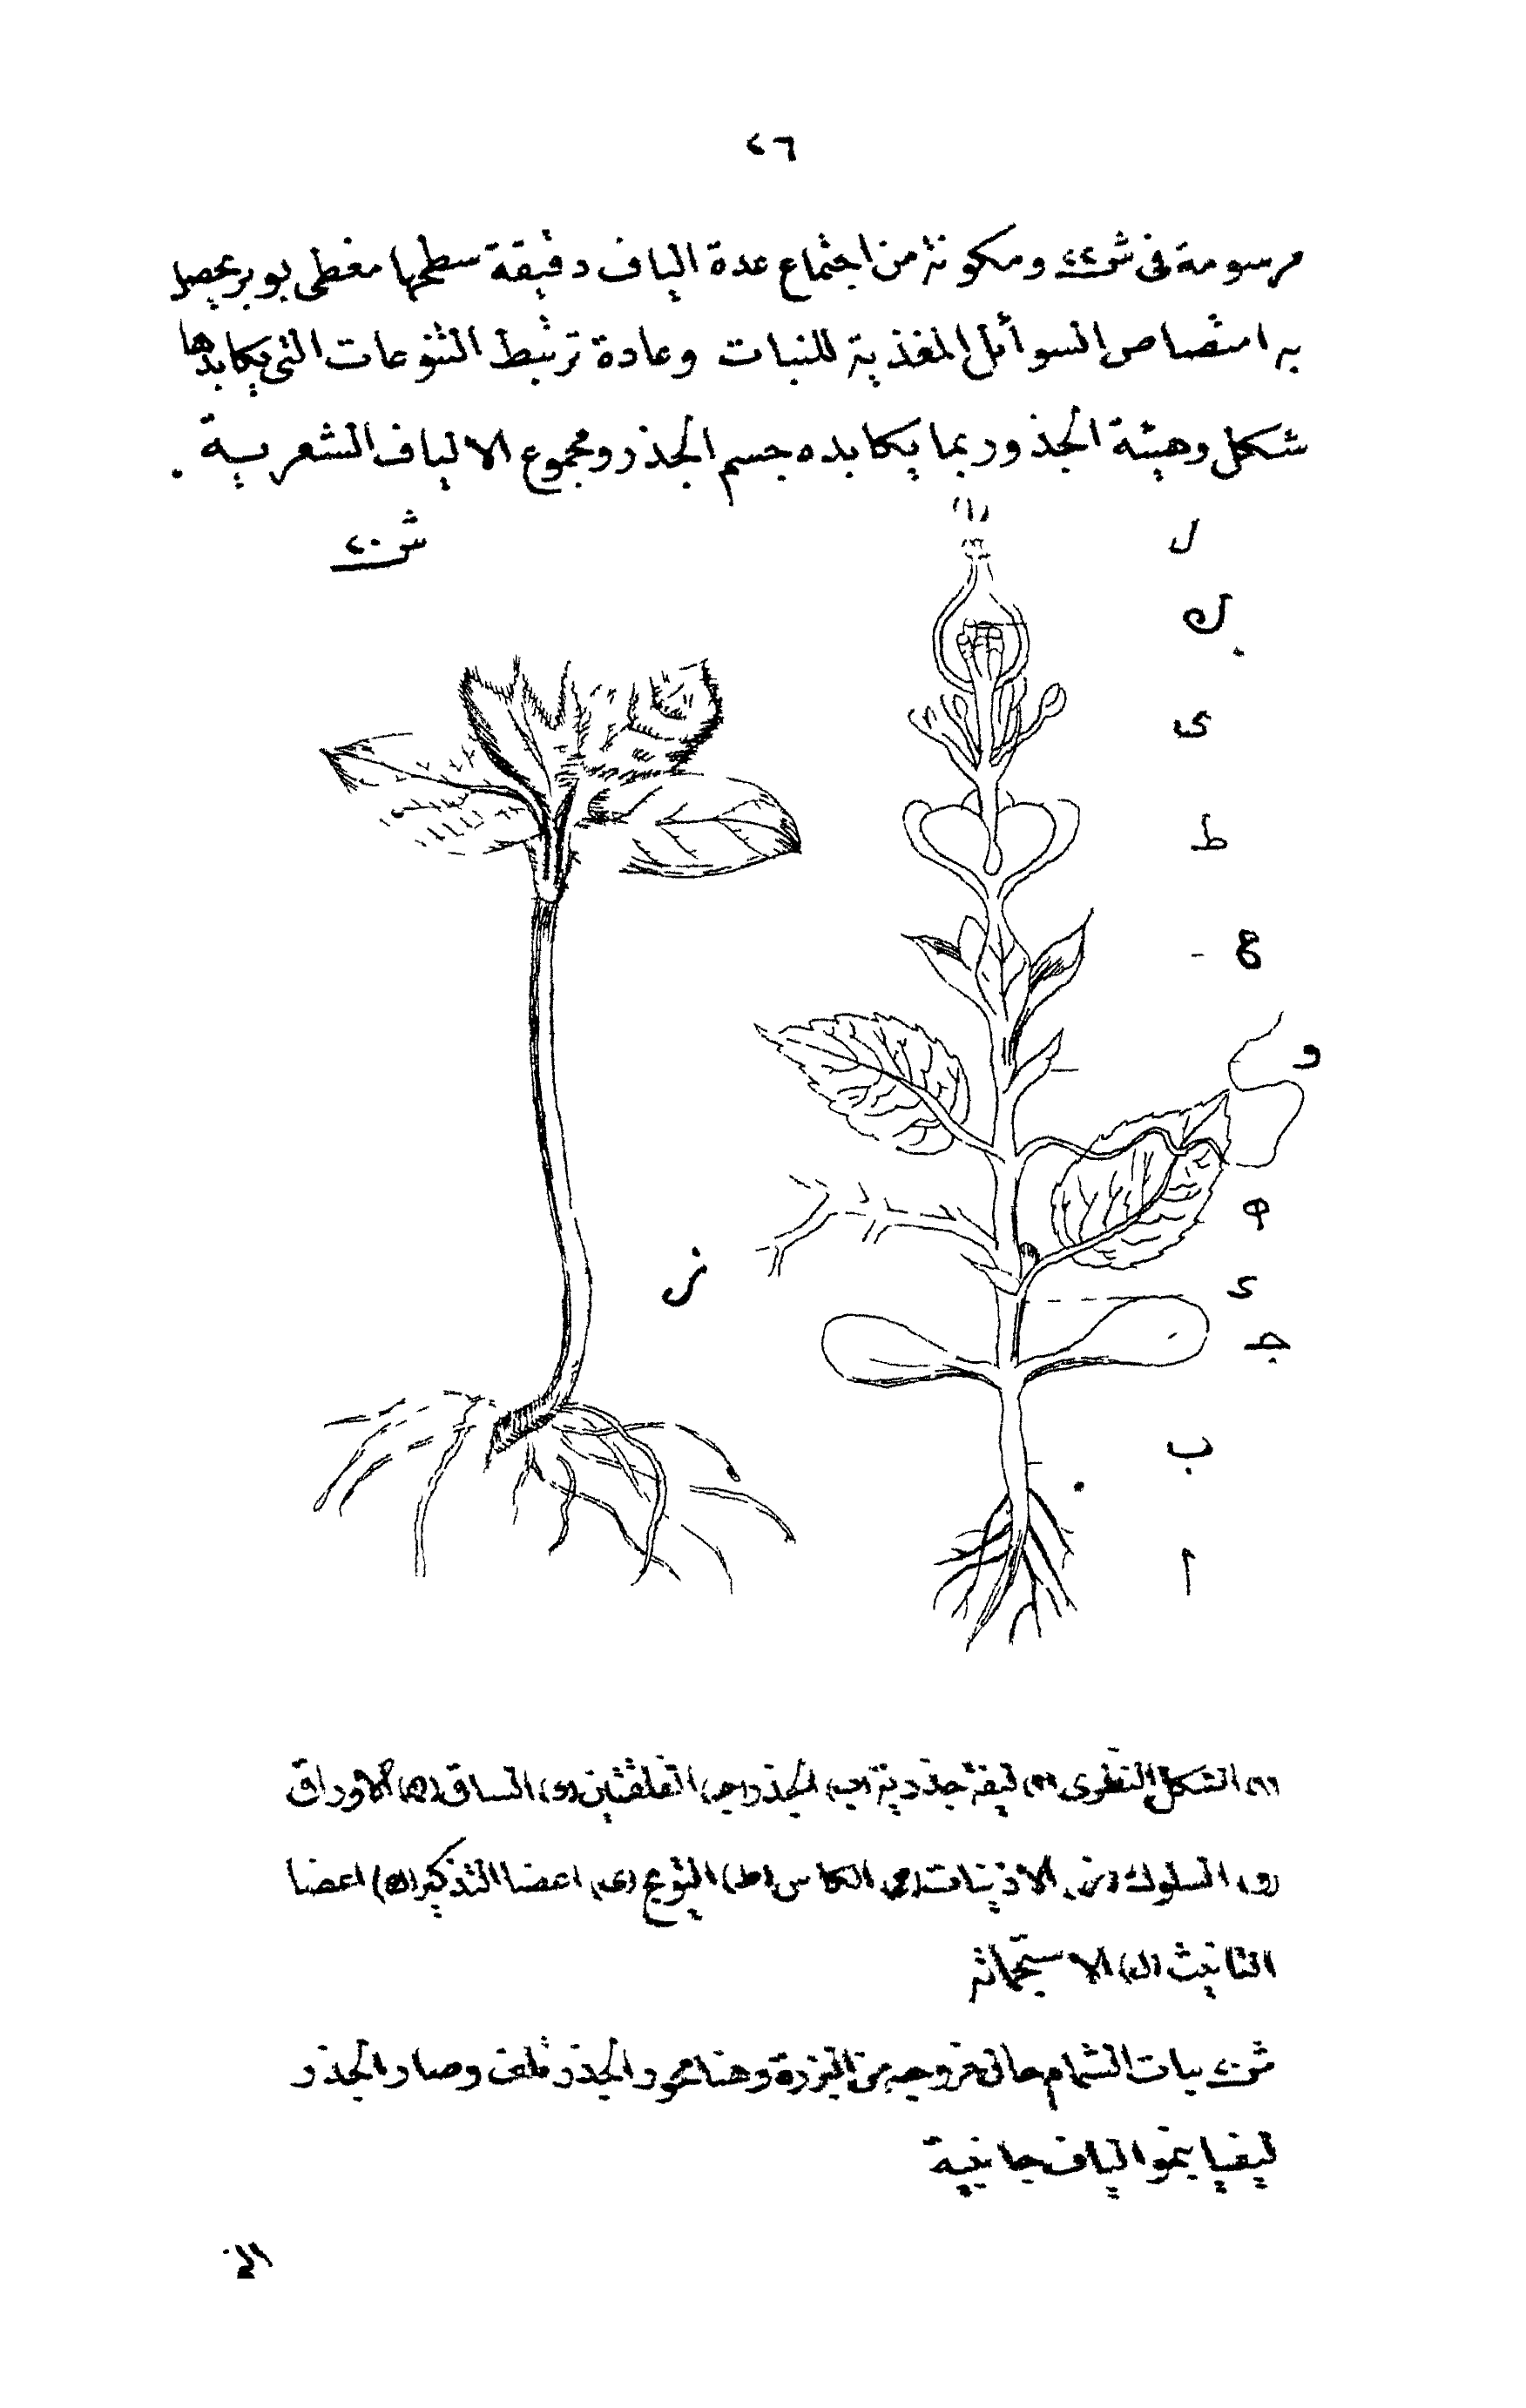 ٢٦
مرسومة فى ش ٢٢ ومكونة من اجتماع عدة الياف دقيقة سطحها مغطى بوبر يحصل
به امتصاص السوائل المغذية للنبات وعادة ترتبط التنوعات التى يكابدها
شكل وهيئة الجذور بما يكابده جسم الجذر ومجموع الالياف الشعرية .
(١)
ش ٢٠
ل
ك
ى
ط
ح
و
ه
ز
د
ج
ب
ا
(١) الشكل النظرى (ا) ليفة جذرية (ب) الجذر (ج) الفلقتين (د) الساق (ه) الاوراق
(و) السلوك (ز) الاذينات (ح) الكاس (ط) التويج (ى) اعضا التذكير (ك) اعضا
التانيث (ل) الاستجماتة
ش ٢٠ نبات الشمام حال خروجه من البزرة وهنا عمود الجذر تلف وصار الجذر
ليفيا بنمو الياف جانبية